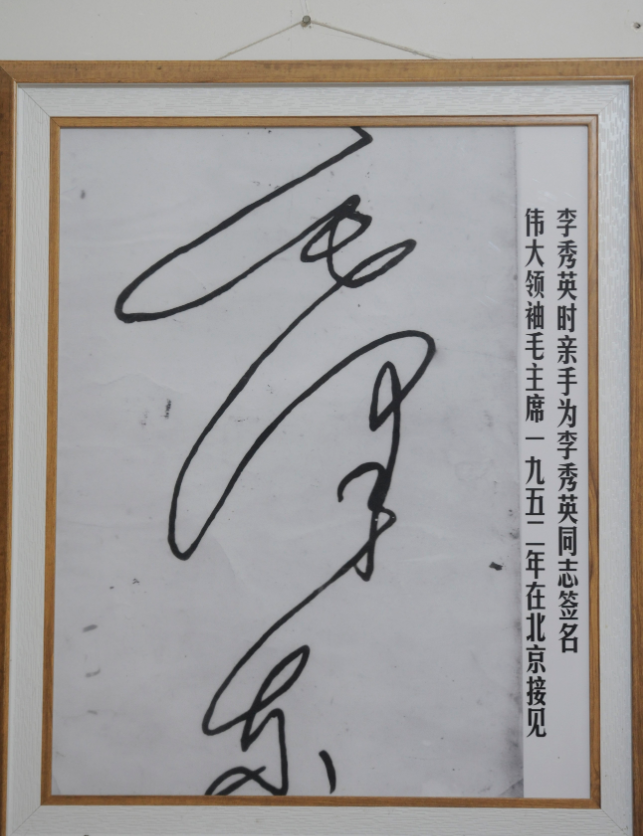 毛泽东
伟大领袖毛主席一九五二年在北京接见
李秀英时亲手为李秀英同志签名